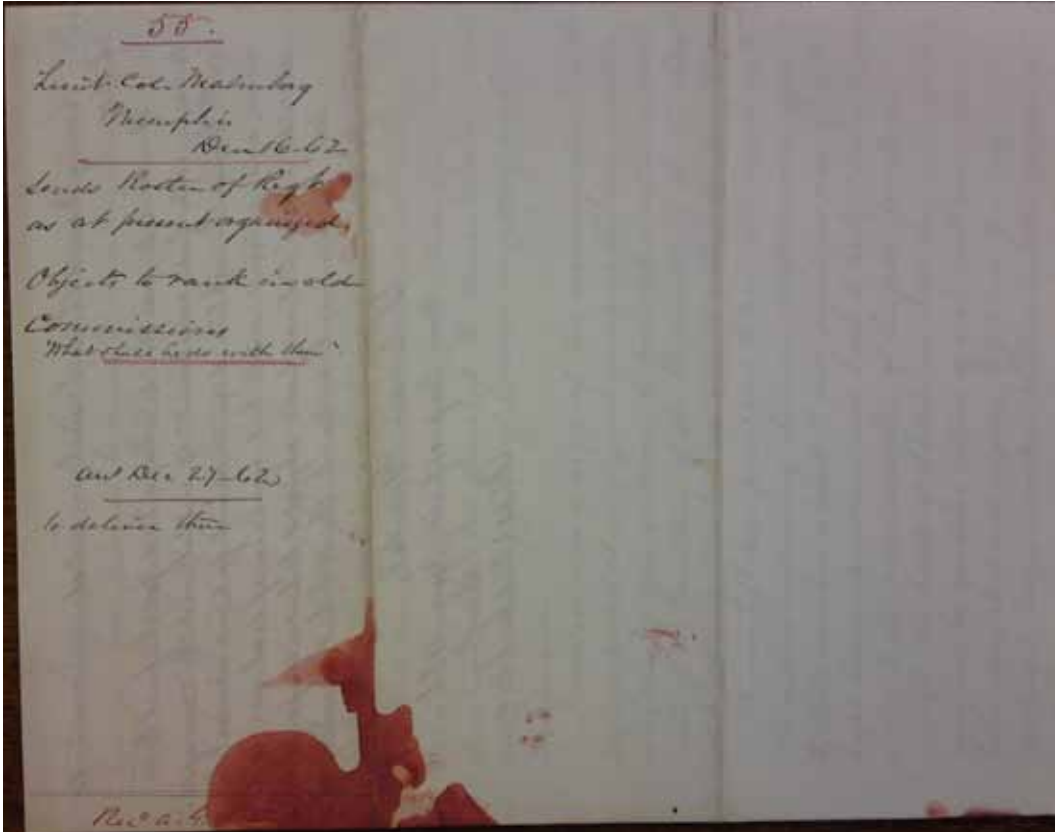 55.
Lieut. Col. Malmborg
Memphis
Dec 16-62
Sends Roster of Regt
as at present organized.
Objects to rank in old
Commissions
"What shall he do with them"
ans Dec 27-62
to deliver them
Recd